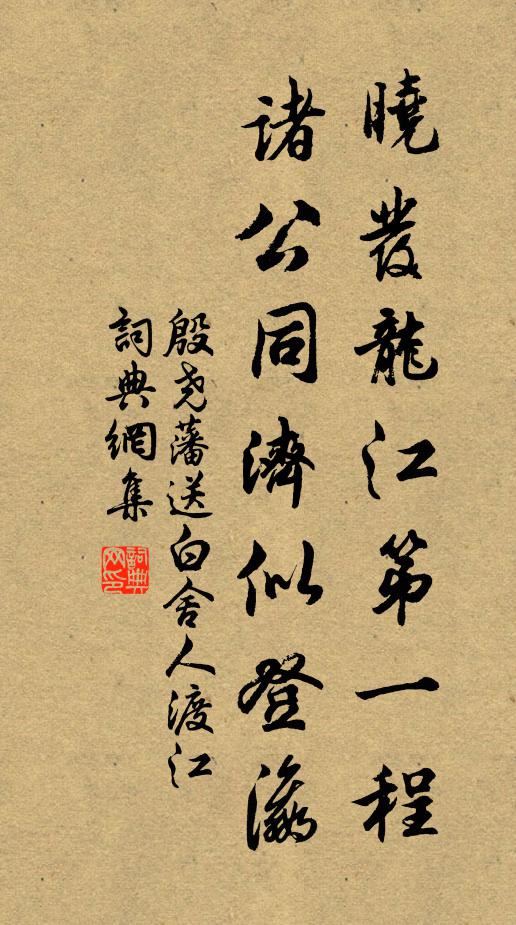 曉發龍江第一程
諸公同濟似登瀛
殷堯藩送白舍人渡江
詞典網集
詞典网印